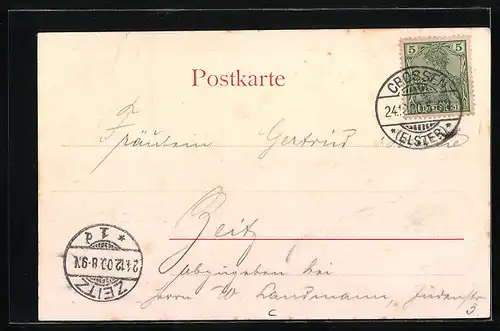 Postkarte
5
5
CROSSEN
24.12
*(ELSTER)*
Fräulein Gertrud
Zeitz
abzugeben bei
Herrn W Landmann Judenstr
c 3
* 1 d
24.12.00.8-9N.
ZEITZ